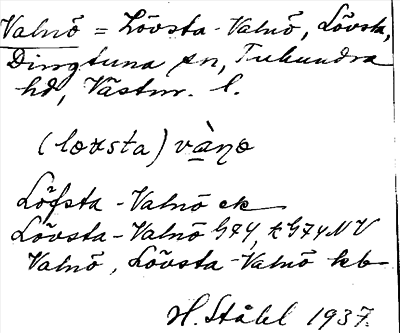 Valnö = Lövsta-Valnö, Lövsta,
Dingtuna sn, Tuhundra
hd, Västm. l.
(lœvsta) và̠ṇə
Löfsta-Valnö ek
Lövsta-Valnö G74, k G74 NV
Valnö, Lövsta-Valnö kb
H. Ståhl 1937.